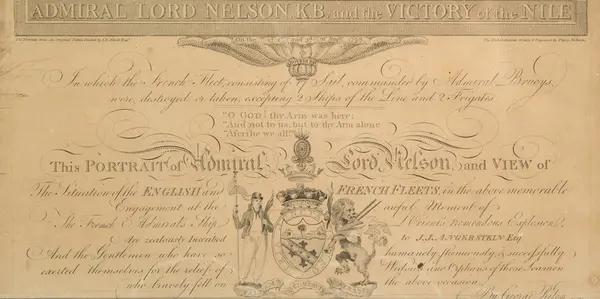 ADMIRAL LORD NELSON K.B. and the VICTORY of the NILE
On the
In which the French Fleet, consisting of 17 Sail, commanded by Admiral Brueys,
were, destroyed or taken, excepting 2 Ships of the Line and 2 Frigates
"O GOD! thy Arm was here;
"And not to us, but to thy Arm alone
"Ascribe we all!"
This PORTRAIT of Admiral Lord Nelson, and VIEW of
The Situation of the ENGLISH and FRENCH FLEETS, in the above memorable
Engagement at the awful Moment of
The French Admirals Ship L'Orient's tremendous Explosion,
Are zealously Inscribed to J.J. ANGERSTEIN Esq.
And the Gentlemen who have so humanely, strenuously, & successfully
exerted themselves for the relief of Widows and Orphans of those Seamen
who bravely fell on the above occasion.
By George Riley